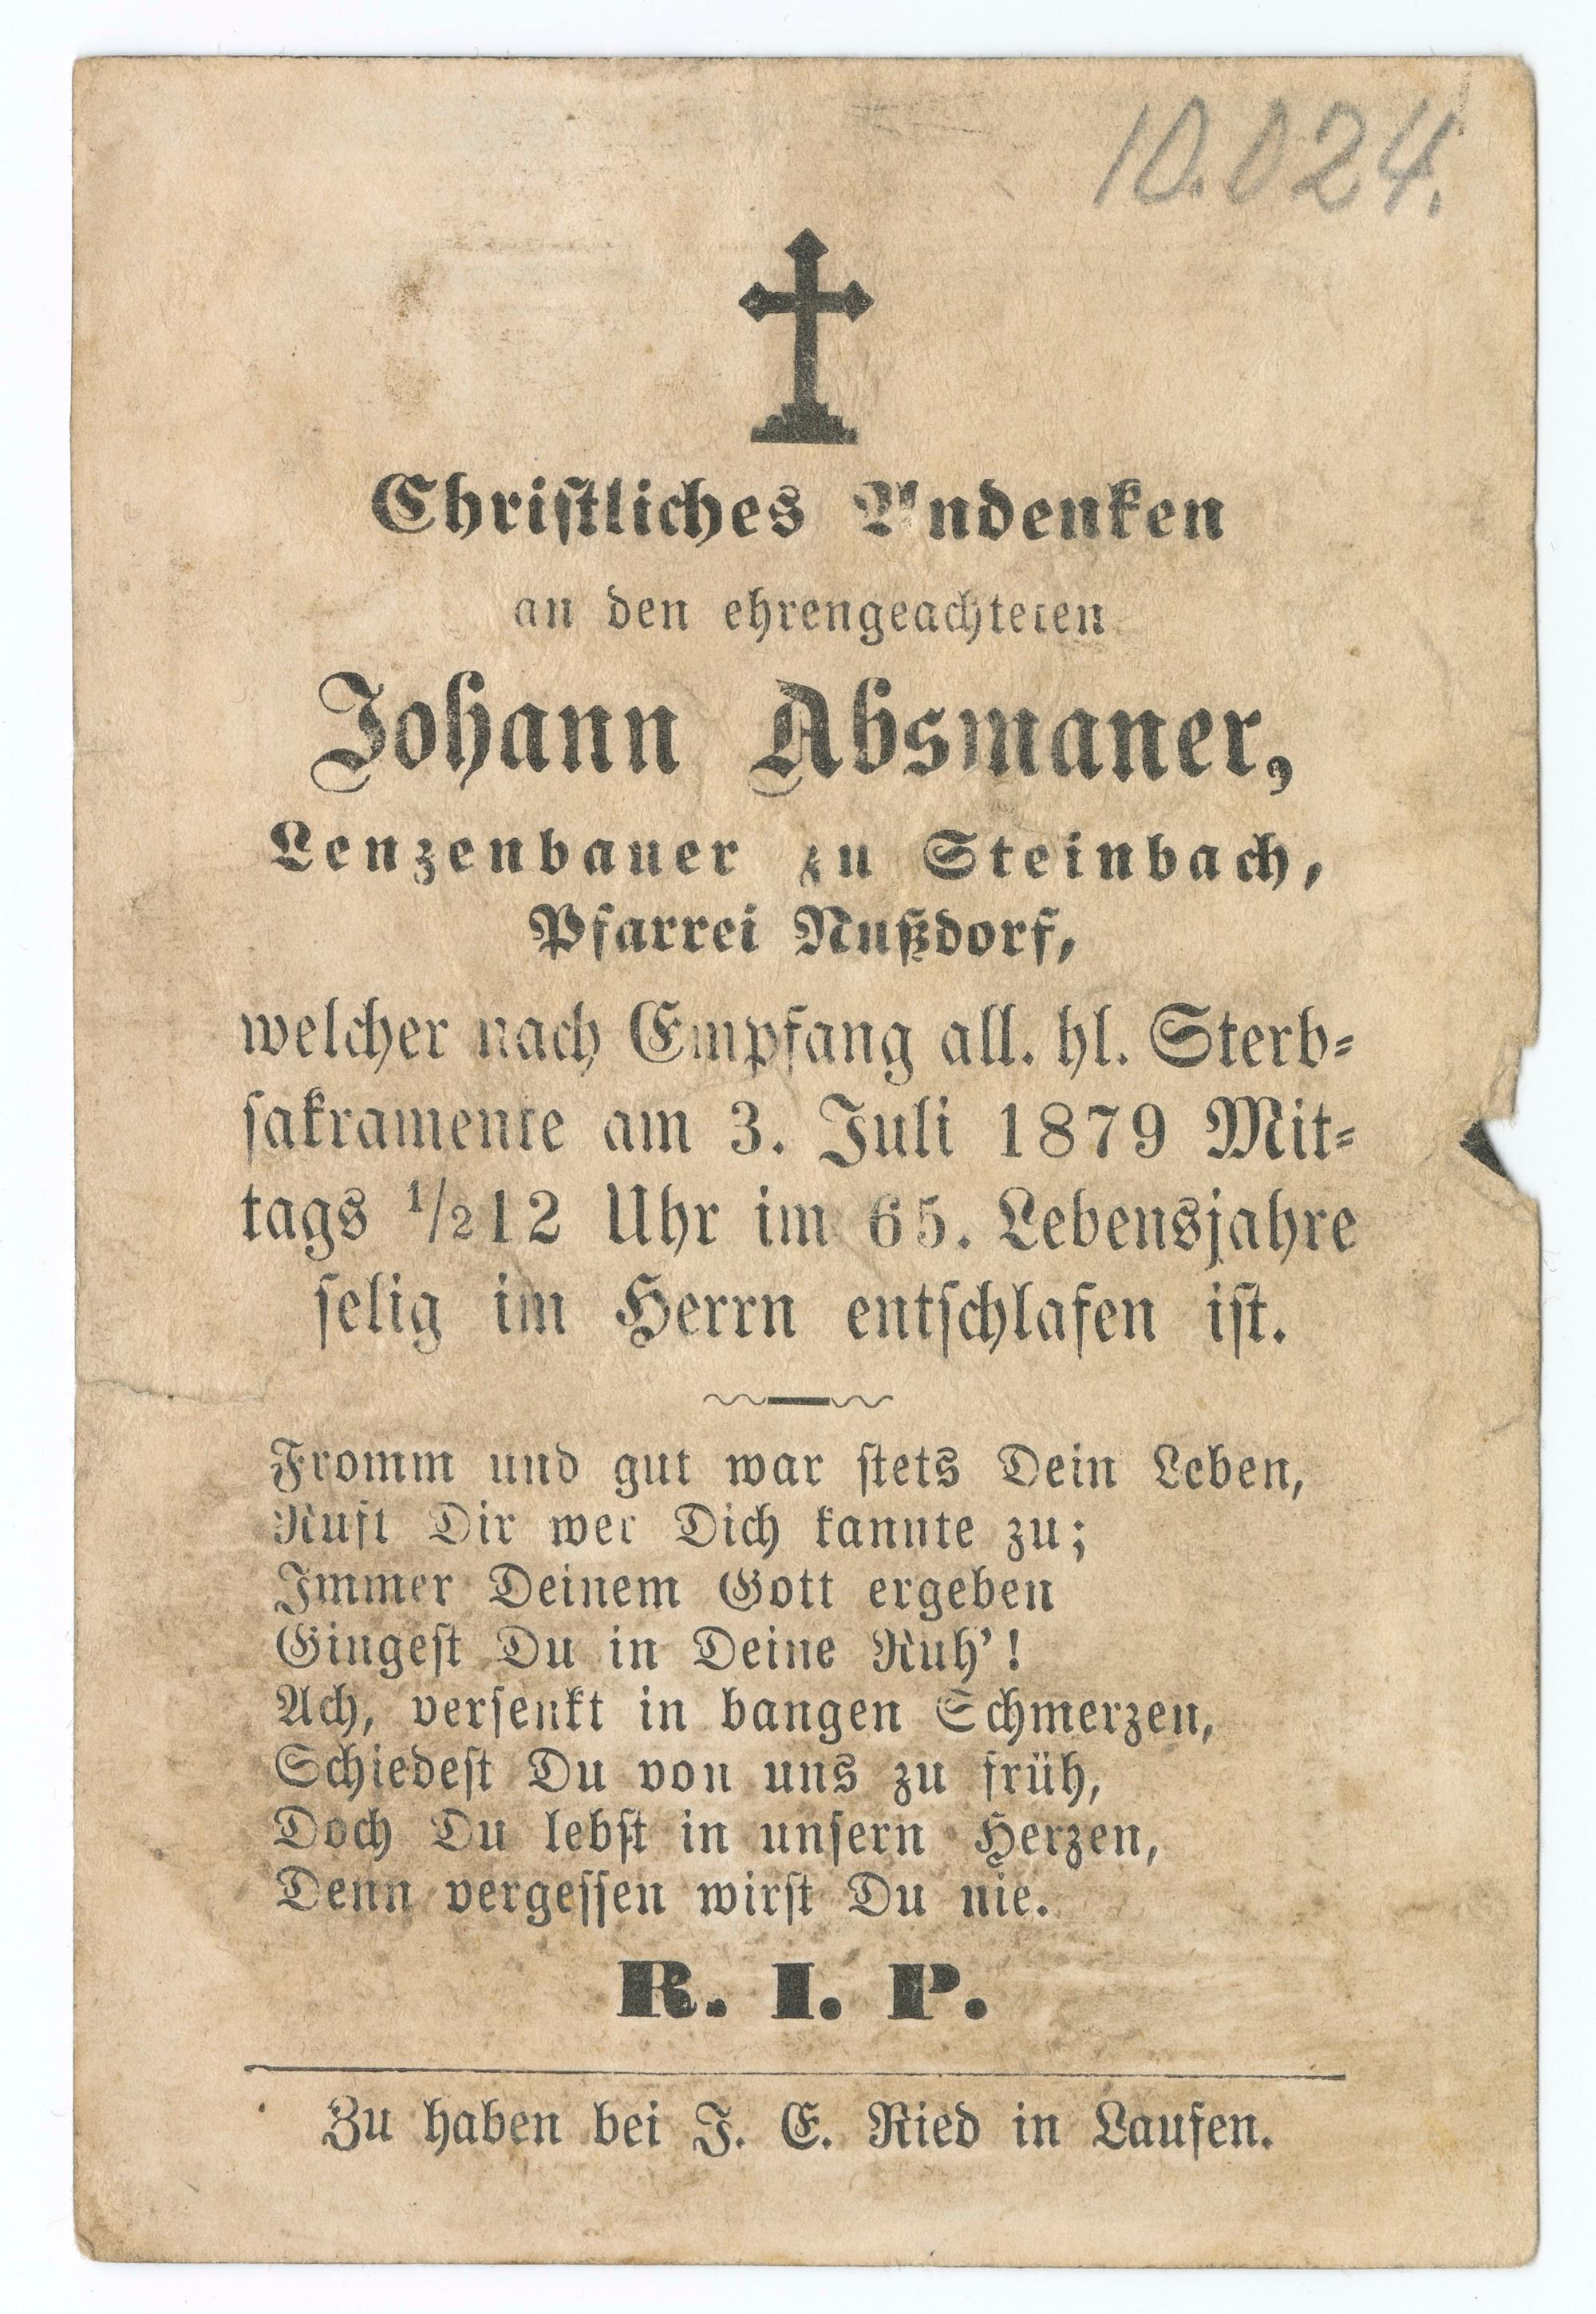 10.024.
Christliches Andenken
an den ehrengeachteten
Johann Absmaner,
Lenzenbauer zu Steinbach,
Pfarrei Nußdorf,
welcher nach Empfang all. hl. Sterb=
sakramente am 3. Juli 1879 Mit=
tags 1/212 Uhr im 65. Lebensjahre
selig im Herrn entschlafen ist.
Fromm und gut war stets Dein Leben,
Ruft Dir wer Dich kannte zu;
Immer Deinem Gott ergeben
Gingest Du in Deine Ruh'!
Ach, versenkt in bangen Schmerzen,
Schiedest Du von uns zu früh,
Doch Du lebst in unsern Herzen,
Denn vergessen wirst Du nie.
R. I. P.
Zu haben bei J. E. Ried in Laufen.